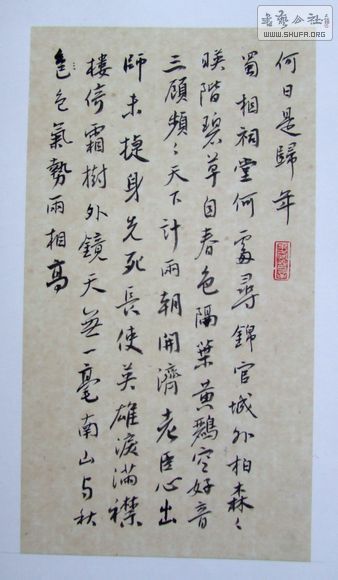 书艺公社
WWW.SHUFA.ORG
何日是歸年
蜀相祠堂何處尋錦官城外柏森〻
映階碧草自春色隔葉黃鸝空好音
三顧頻〻天下計兩朝開濟老臣心出
師未捷身先死長使英雄淚滿襟
樓倚霜樹外鏡天無一毫南山与秋
色色氣勢兩相高